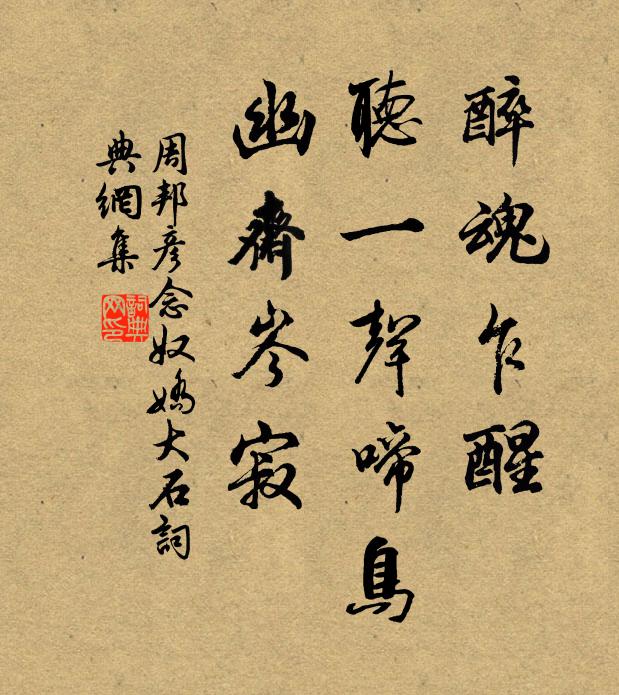 醉魂乍醒
聽一聲啼鳥
幽齋岑寂
周邦彥念奴嬌大石詞
典網集
詞典網印